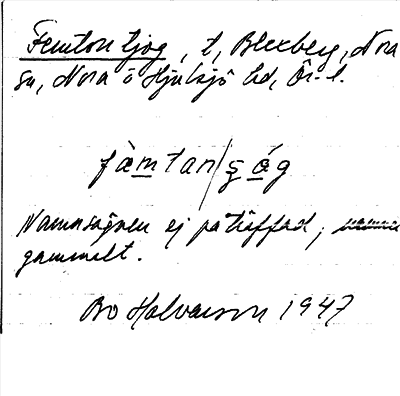 Femton tjog, t, Blexberg, Nora
sn, Nora o Hjulsjö hd, Ör. l.
fàmtan/ʂág
Namnsägnen ej påträffad; namnet
gammalt.
Bo Halvarson 1947